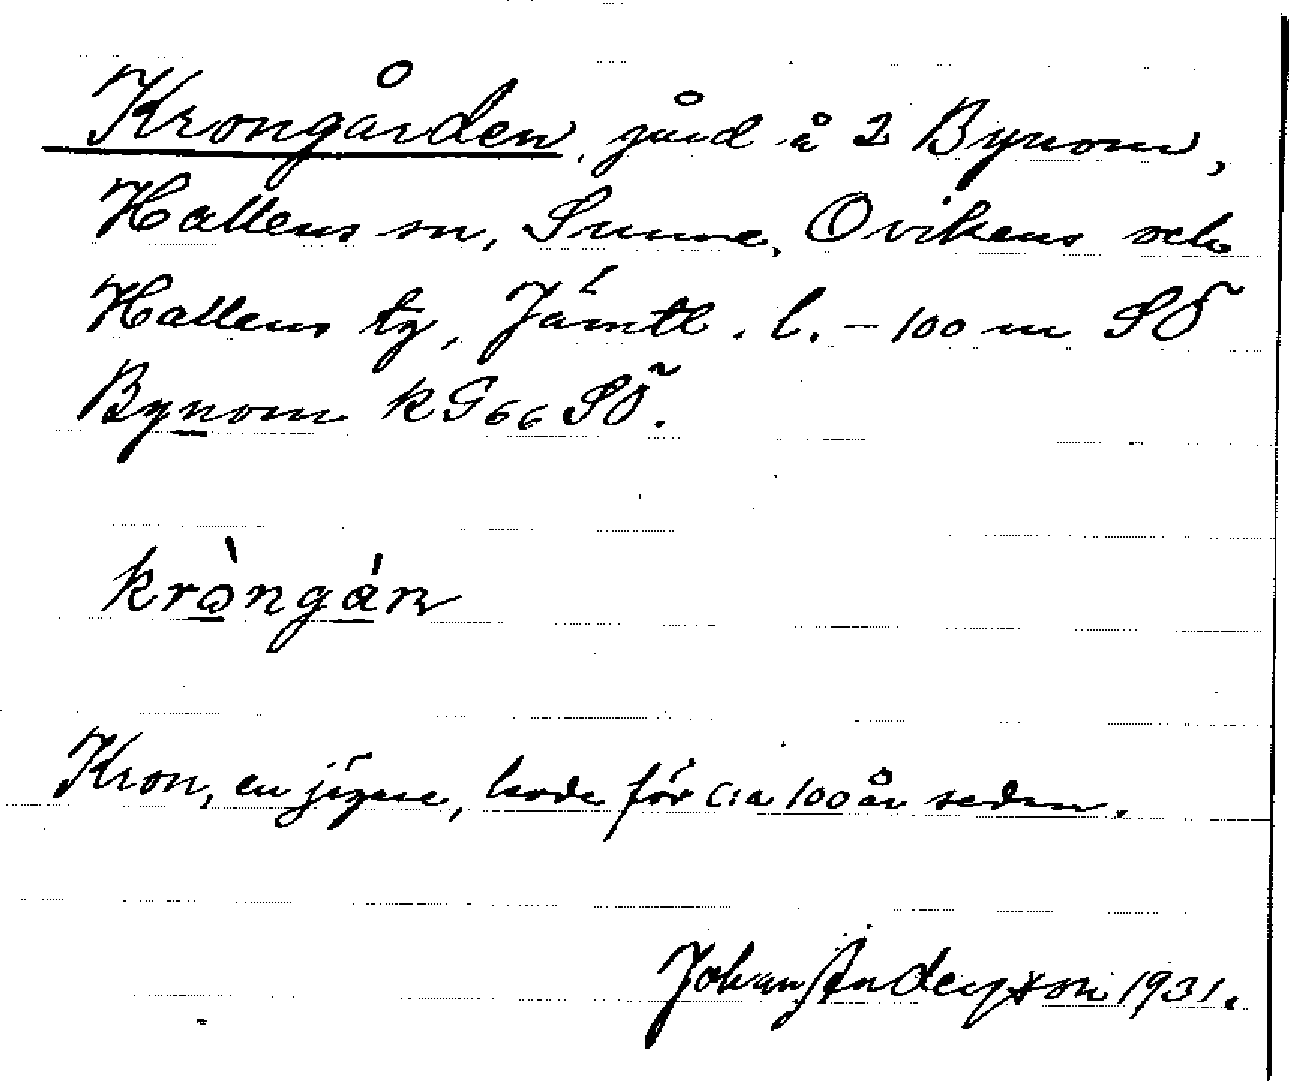 Krongården, gård å 2 Bynom,
Hallens sn, Sunne, Ovikens och
Hallens tg, Jämtl. l. – 100 m SÖ
Bynom k G66 SÖ.
kròngán
Kron, en jägare, levde för c:a 100 år sedan.
Johan Anderzon 1931.